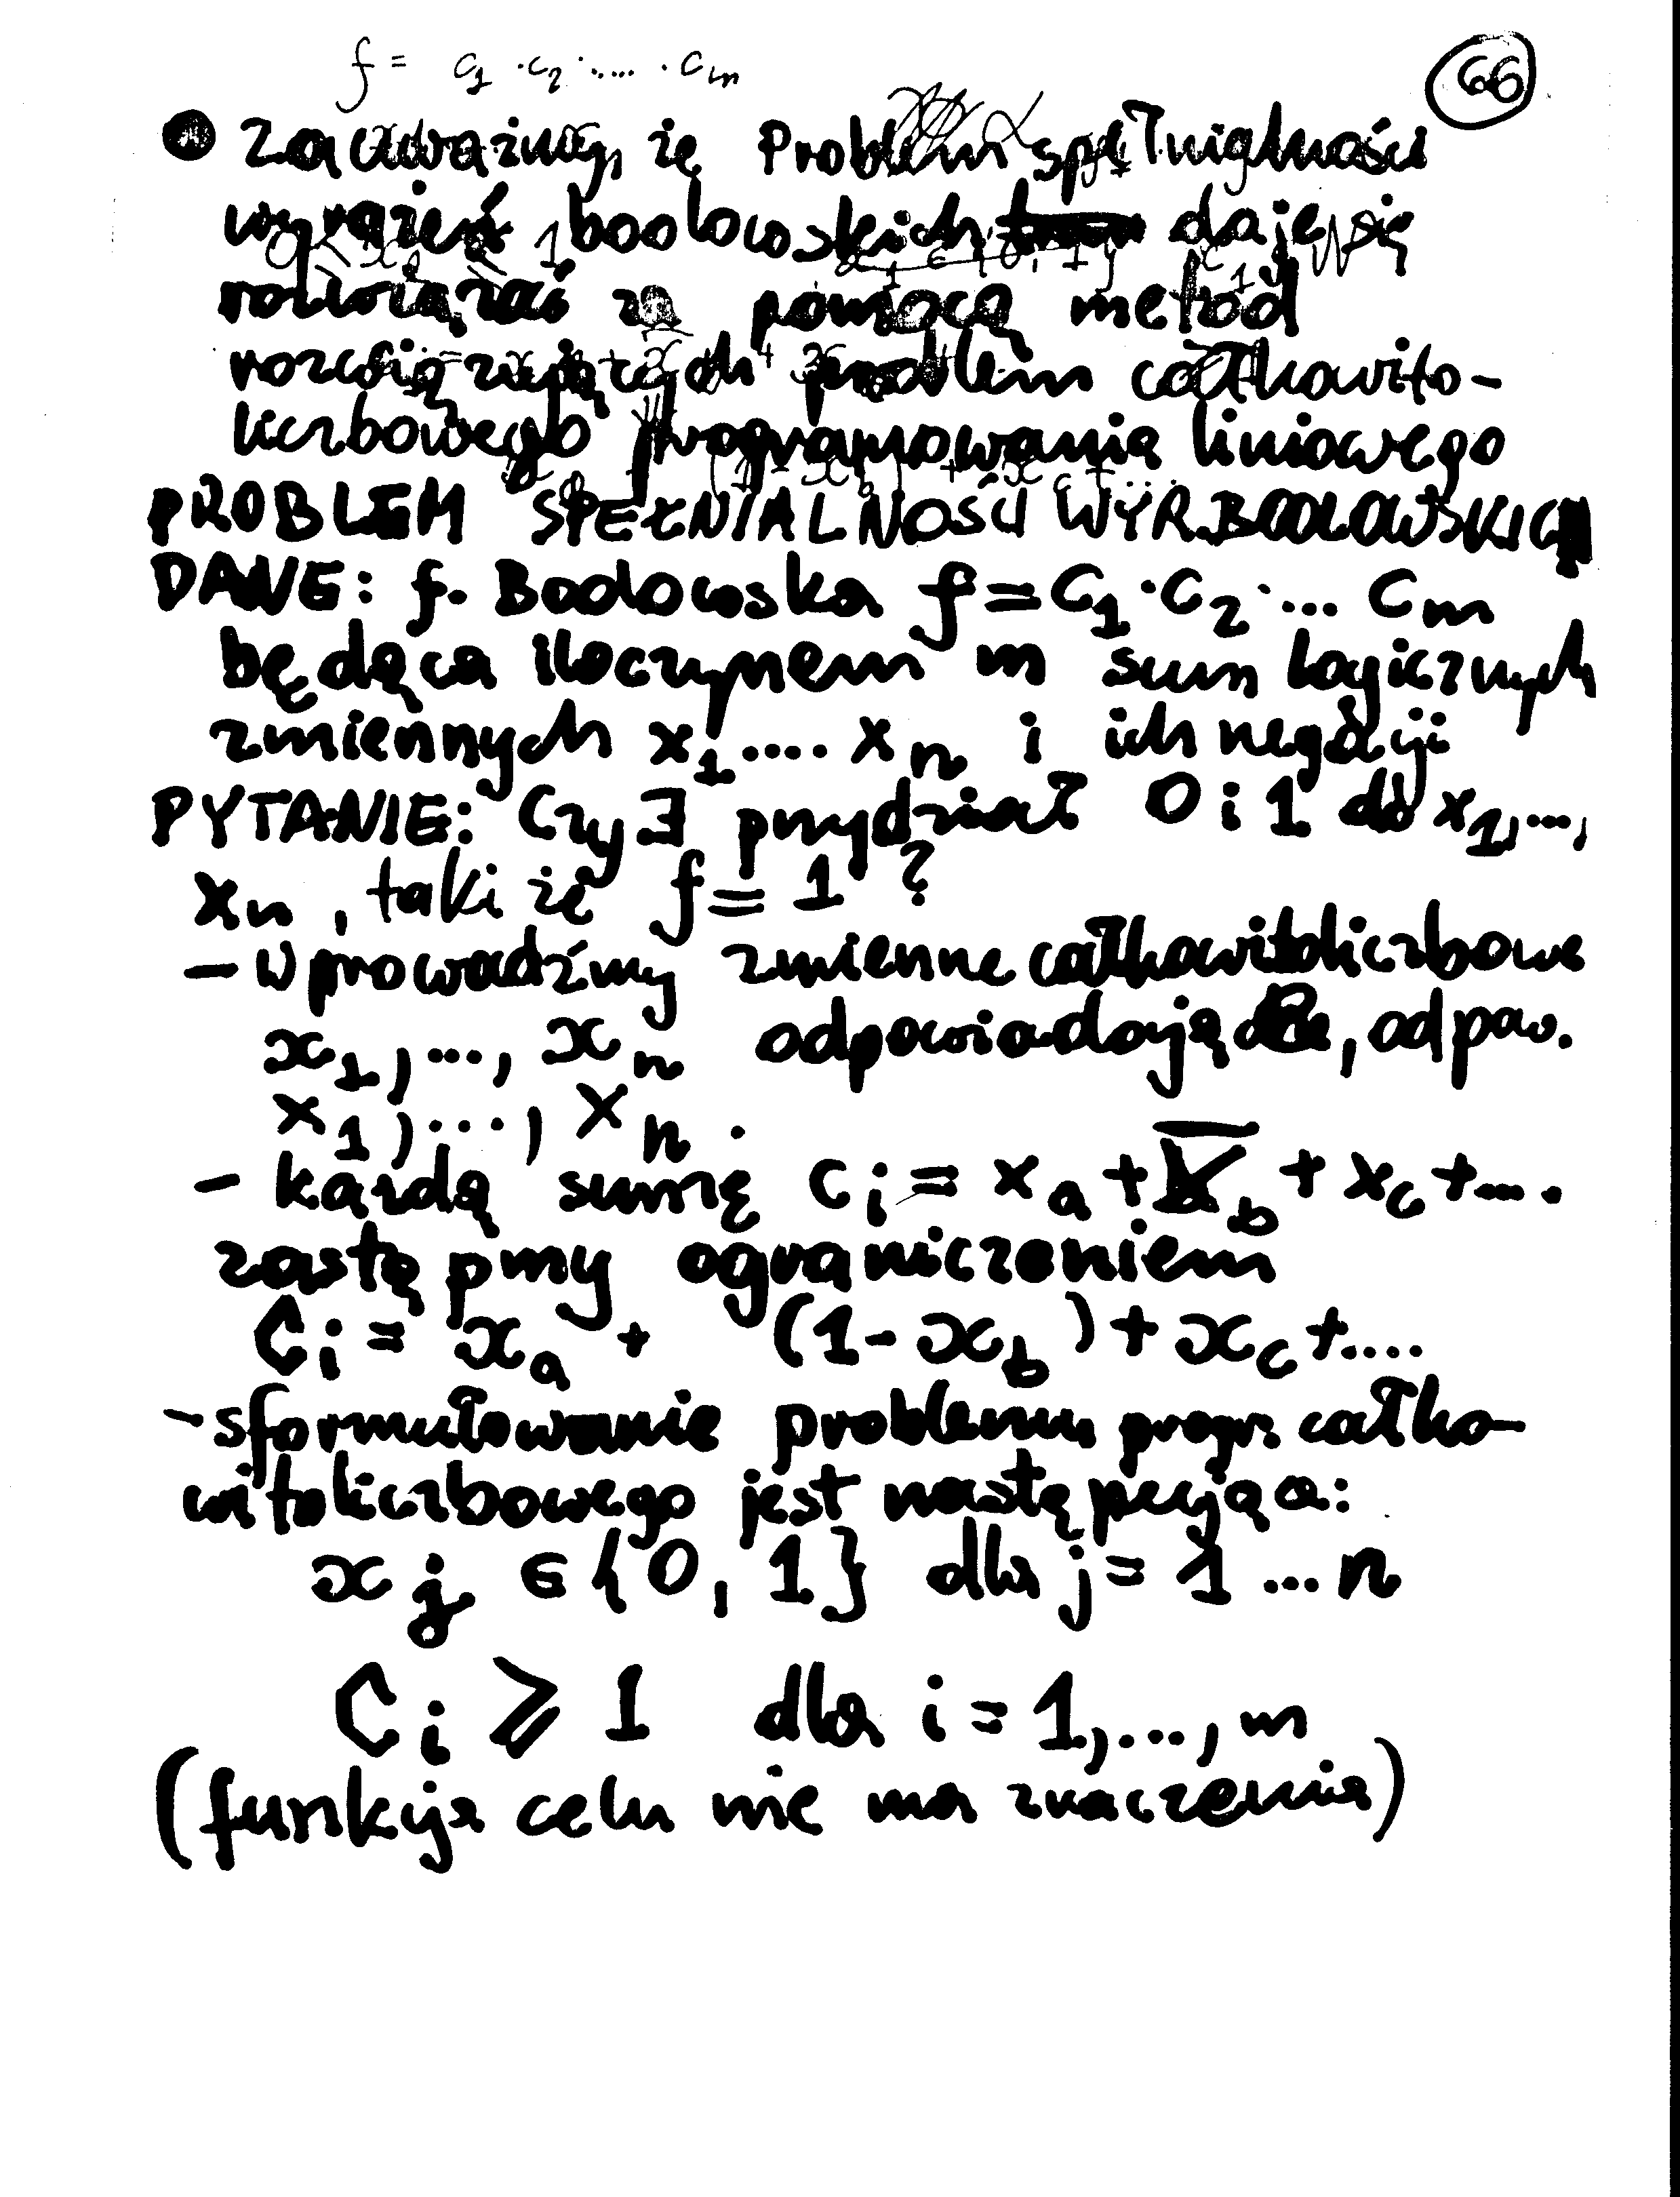 f = c1 · c2 · .... · cm
66
Zauważmy, że Problem spełnialności
wyrażeń boolowskich daje się
rozwiązać za pomocą metod
rozwiązujących problem całkowito-
liczbowego programowania liniowego
PROBLEM SPEŁNIALNOŚCI WYR. BOOLOWSKICH
DANE: f. Boolowska f = C1 · C2 · ... Cm
będąca iloczynem m sum logicznych
zmiennych x1 .... xn i ich negacji
PYTANIE: Czy ∃ przydział 0 i 1 do x1, ...,
xn, taki że f = 1 ?
- Wprowadźmy zmienne całkowitoliczbowe
x1, ..., xn odpowiadające, odpow.
x1, ..., xn.
- każdą sumę Ci = xa + x̄b + xc + ....
zastępmy ograniczeniem
Ci = xa + (1 - xb) + xc + ....
- sformułowanie problemu progr. całko-
witoliczbowego jest następująca:
xj ∈ {0, 1} dla j = 1 ... n
Ci ⩾ 1 dla i = 1, ..., m
(funkcja celu nie ma znaczenia)